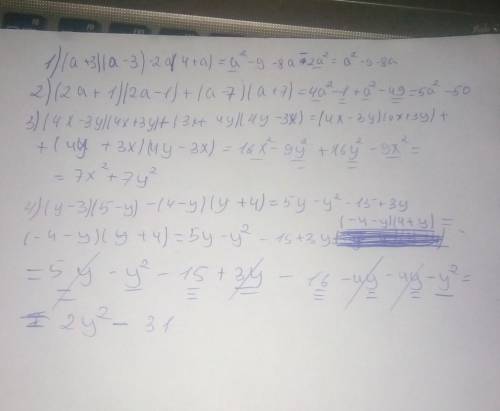 1) (a+3)(a-3)-2a(4+a)=a²-9-8a-2a²=a²-9-8a
2) (2a+1)(2a-1)+(a-7)(a+7)=4a²-1+a²-49=5a²-50
3) (4x-3y)(4x+3y)+(3x+4y)(4y-3x)=(4x-3y)(4x+3y)+
+(4y+3x)(4y-3x)=16x²-9y²+16y²-9x²=
=7x²+7y²
4) (y-3)(5-y)-(4-y)(y+4)=5y-y²-15+3y
(-4-y)(y+4)=5y-y²-15+3y (-4-y)(4+y)=
=5y-y²-15+3y-16-4y-4y-y²=
=2y²-31